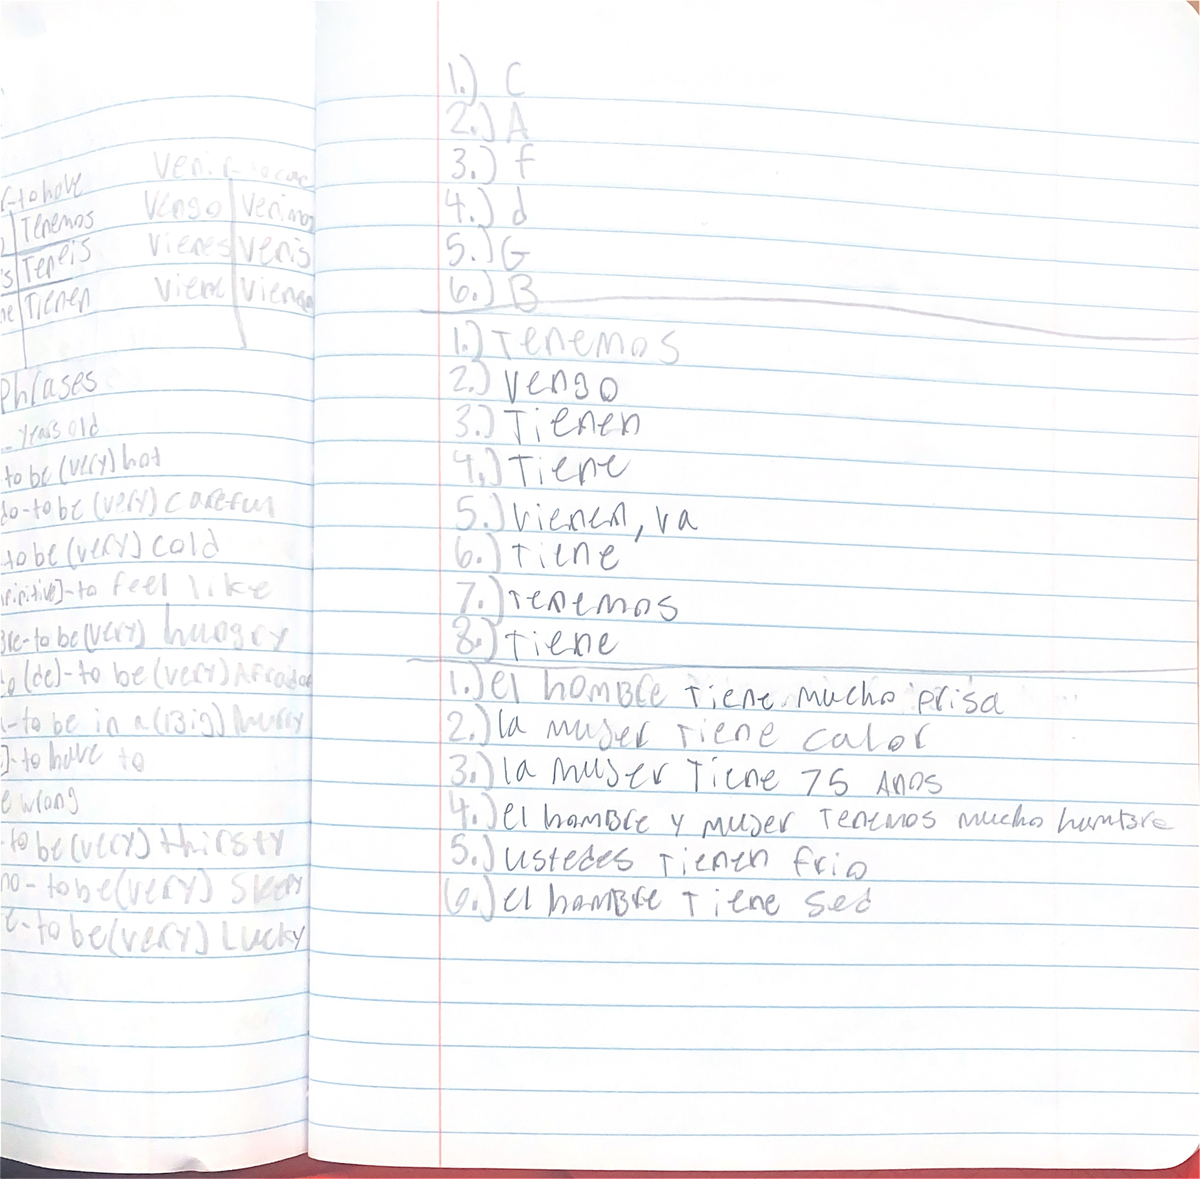 r-to have
Tenemos
s Teneis
ne Tienen
Venir-to come
Vengo Venimos
Vienes Venis
Viene Vienen
Phrases
_ years old
to be (very) hot
do-to be (very) careful
to be (very) cold
initive]-to feel like
bre-to be (very) hungry
o (de)-to be (very) Afraid
-to be in a (Big) hurry
]-to have to
e wrong
-to be (very) thirsty
no-to be (very) Sleepy
e-to be (very) Lucky
1.) C
2.) A
3.) f
4.) d
5.) G
6.) B
1.) Tenemos
2.) vengo
3.) Tienen
4.) Tiene
5.) vienen, va
6.) Tiene
7.) Tenemos
8.) Tiene
1.) el hombre Tiene mucho prisa
2.) la mujer Tiene calor
3.) la mujer Tiene 75 Anos
4.) el hombre y mujer Tenemos mucho hambre
5.) ustedes Tienen frio
6.) el hombre Tiene sed